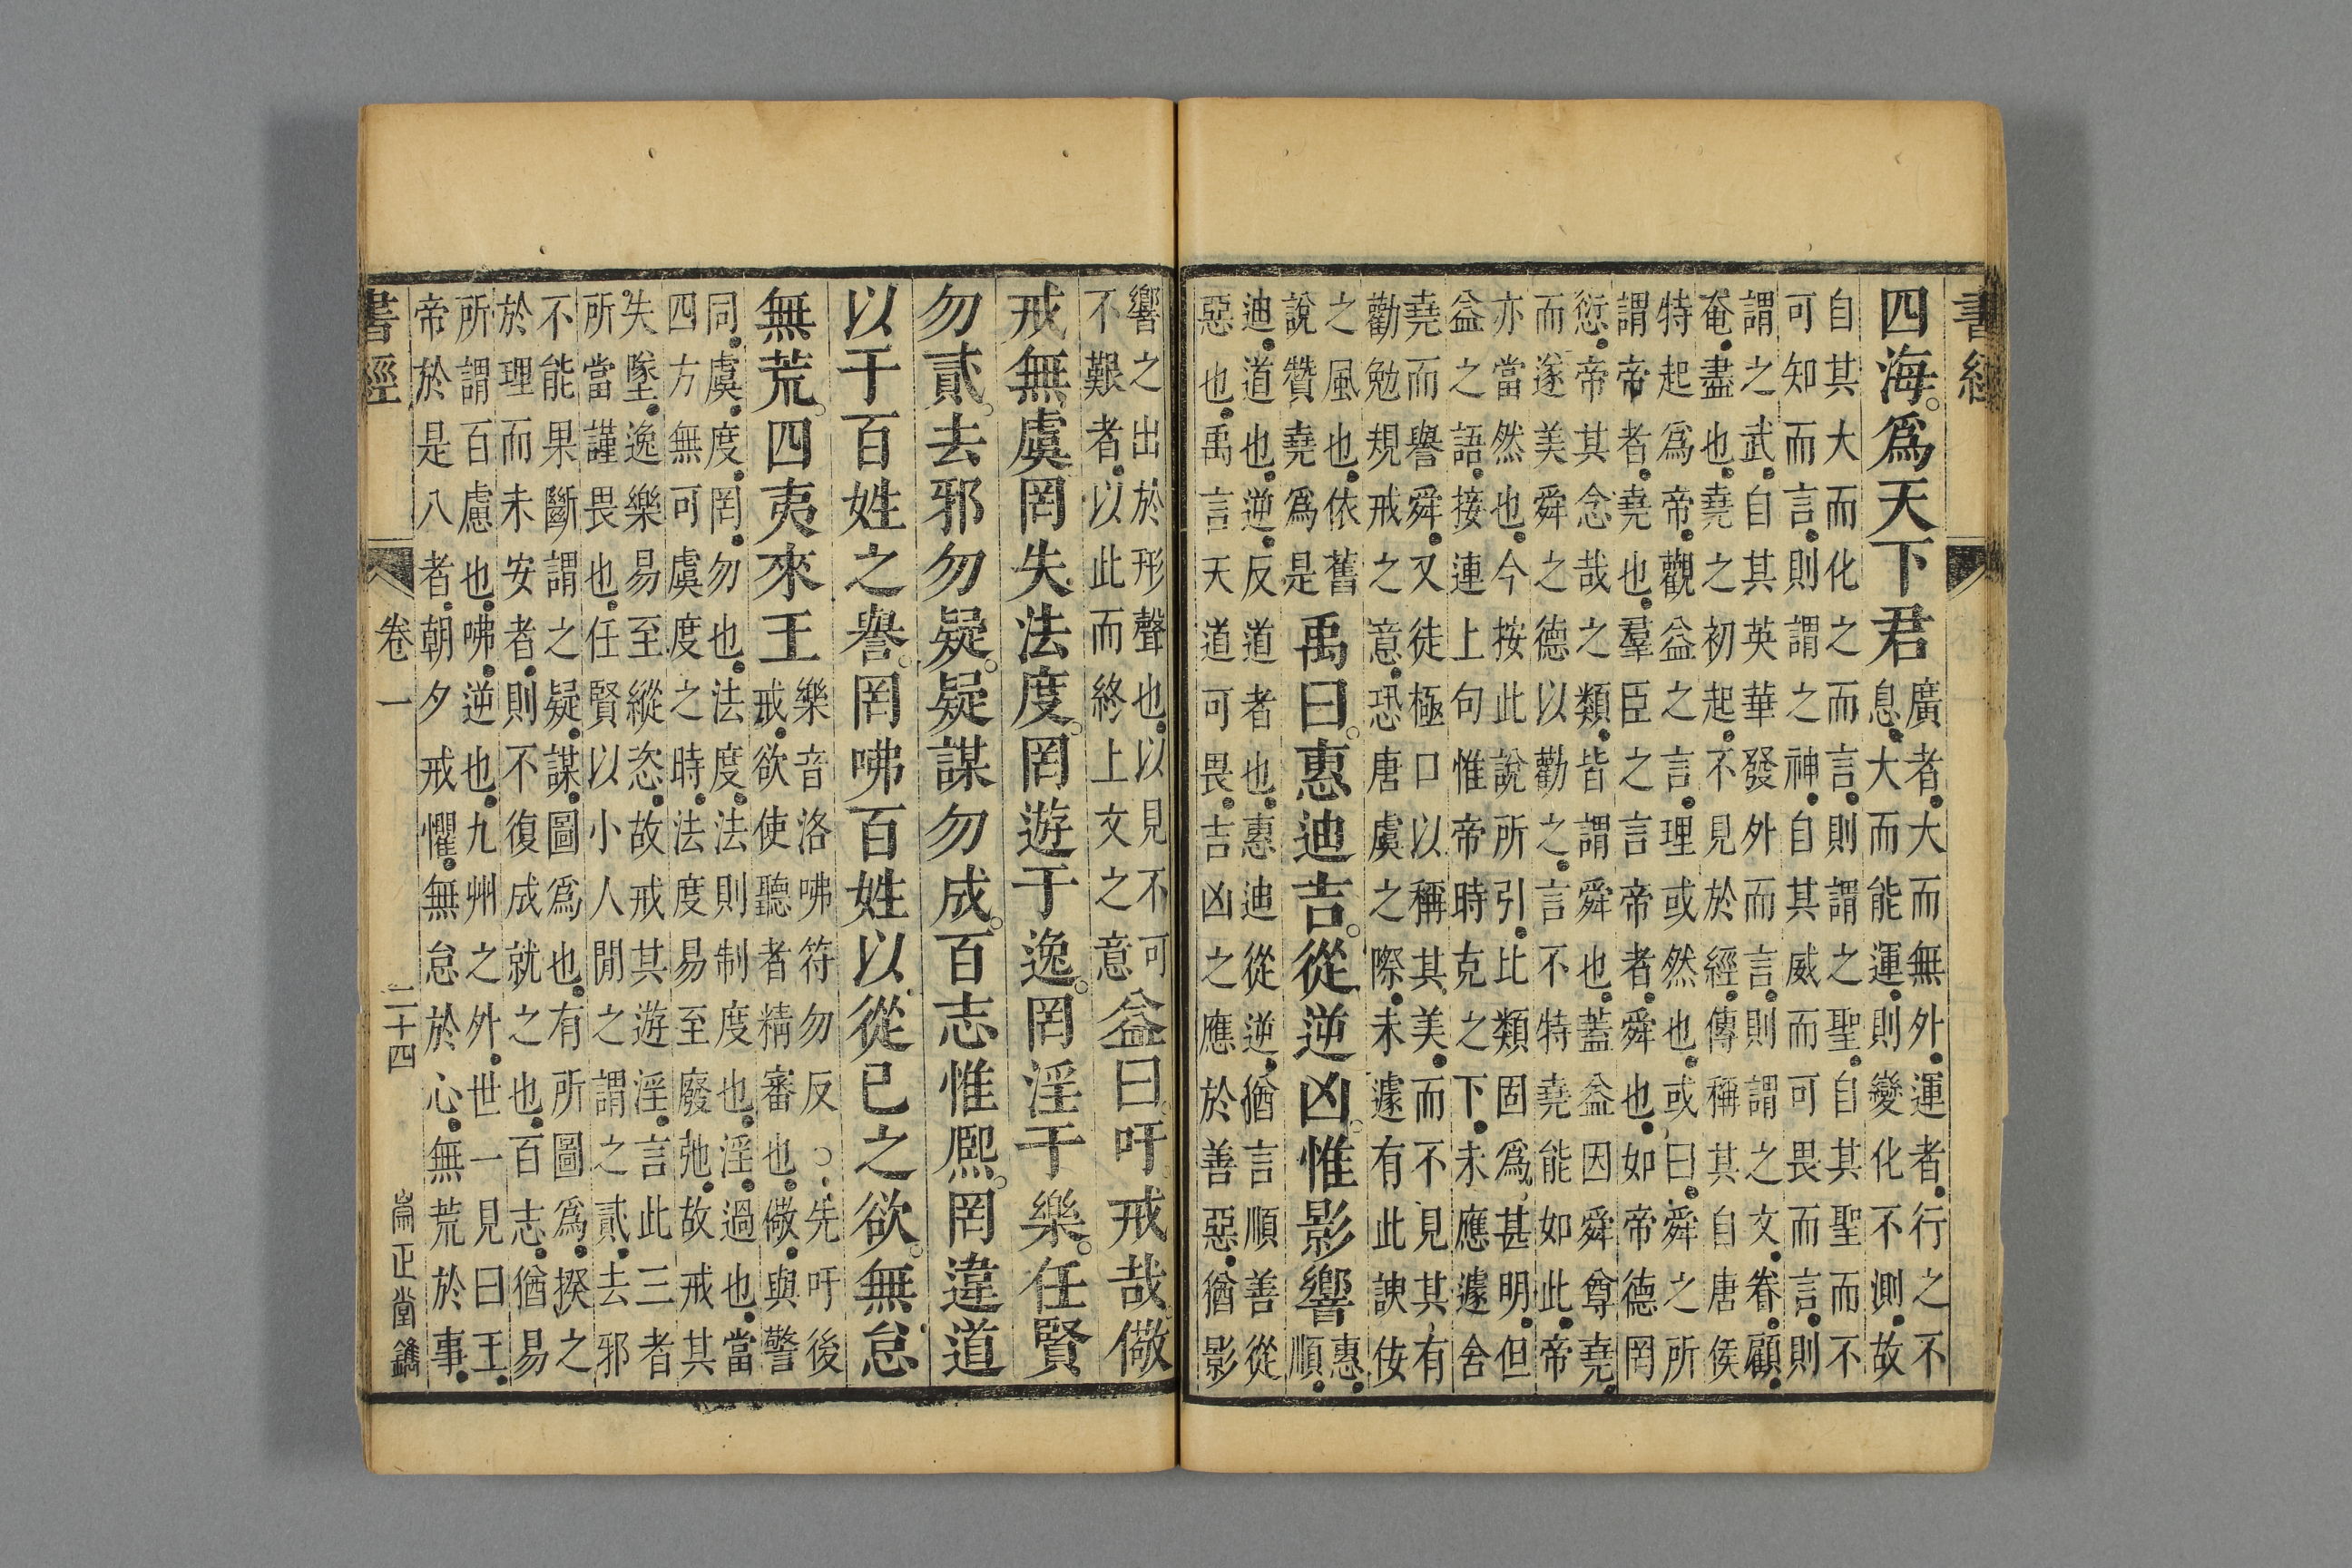 書經
四海。爲天下君
廣者。大而無外。運者。行之不
息。大而能運。則變化不測。故
自其大而化之而言。則謂之聖。自其聖而不
可知而言。則謂之神。自其威而可畏而言。則
謂之武。自其英華發外而言。則謂之文。眷。顧。
奄。盡也。堯之初起。不見於經。傳稱其自唐侯
特起爲帝。觀益之言。理或然也。或曰。舜之所
謂帝者。堯也。羣臣之言帝者。舜也。如帝德罔
愆。帝其念哉之類。皆謂舜也。蓋益因舜尊堯。
而遂美舜之德以勸之。言不特堯能如此。帝
亦當然也。今按此說所引。比類固爲甚明。但
益之語。接連上句惟帝時克之下。未應遽舍
堯而譽舜。又徒極口以稱其美。而不見其有
勸勉規戒之意。恐唐虞之際。未遽有此諛佞
之風也。依舊
說贊堯爲是
禹曰。惠迪吉。從逆凶。惟影響
惠。
順。
迪。道也。逆。反道者也。惠迪從逆。猶言順善從
惡也。禹言天道可畏。吉凶之應於善惡。猶影
響之出於形聲也。以見不可
不艱者。以此而終上文之意
益曰。吁。戒哉儆
戒無虞罔失法度。罔遊于逸。罔淫于樂。任賢
勿貳。去邪勿疑。疑謀勿成。百志惟熙。罔違道
以干百姓之譽。罔咈百姓以從已之欲。無怠
無荒。四夷來王
樂音洛咈符勿反○先吁後
戒。欲使聽者精審也。儆。與警
同。虞。度。罔。勿也。法度。法則制度也。淫。過也。當
四方無可虞度之時。法度易至廢弛。故戒其
失墜。逸樂易至縱恣。故戒其遊淫。言此三者
所當謹畏也。任賢以小人閒之謂之貳。去邪
不能果斷謂之疑。謀。圖爲也。有所圖爲。揆之
於理而未安者。則不復成就之也。百志。猶易
所謂百慮也。咈。逆也。九州之外。世一見曰王。
帝於是八者。朝夕戒懼。無怠於心。無荒於事。
書經
卷一
二十四
崙正堂鐫